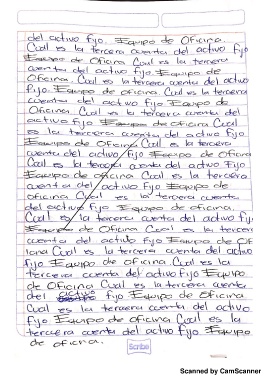 del activo fijo. Equipo de Oficina
Cual es la tercera cuenta del activo fijo
Equipo de Oficina Cual es la tercera
cuenta del activo fijo. Equipo de
Oficina. Cual es la tercera cuenta del activo
fijo. Equipo de oficina. Cual es la tercera
cuenta del activo fijo Equipo de
Oficina. Cual es la tercera cuenta del
activo fijo Equipo de oficina Cual
es la tercera cuenta del activo fijo
Equipo de Oficina Cual es la tercera
cuenta del activo fijo. Equipo de oficina
Cual es la tercera cuenta del activo fijo.
Equipo de oficina. Cual es la tercera
cuenta del activo fijo Equipo de
oficina Cual es la tercera cuenta
del activo fijo Equipo de oficina.
Cual es la tercera cuenta del activo fijo
Equipo de Oficina Cual es la tercera
cuenta del activo fijo Equipo de Of
icina Cual es la tercera cuenta del activo
fijo. Equipo de oficina. Cual es la
tercera cuenta del activo fijo Equipo
de Oficina Cual es la tercera cuenta
del activo fijo Equipo de oficina
Cual es la tercera cuenta del activo
fijo Equipo de oficina Cual es la
tercera cuenta del activo fijo Equipo
de oficina.
Scribe
Scanned by CamScanner